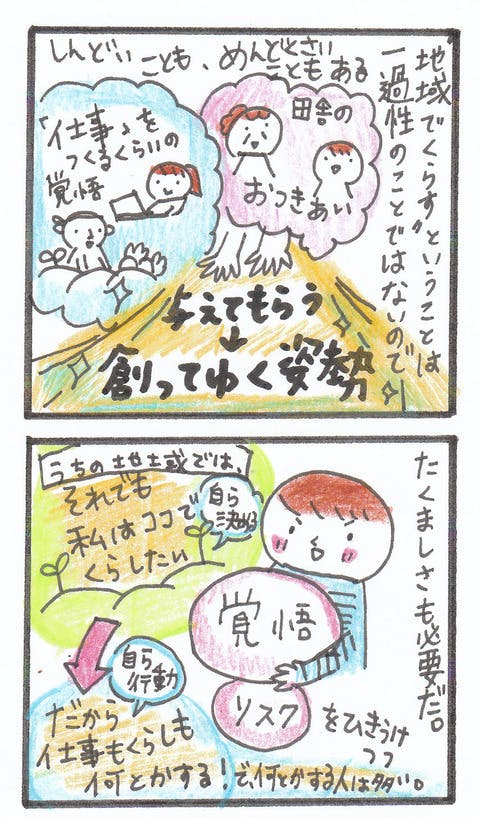 地域でくらす”ということは
一過性のことではないので
しんどいことも、めんどくさい
こともある
田舎の
おつきあい
「仕事」を
つくるくらいの
覚悟
与えてもらう
↓
創ってゆく姿勢
たくましさも必要だ。
うちの地域では、
それでも
私はココで
くらしたい
自ら
決める
覚悟
リスク
をひきうけ
つつ
自ら
行動
だから
仕事もくらしも
何とかする!で、何とかする人は多い。